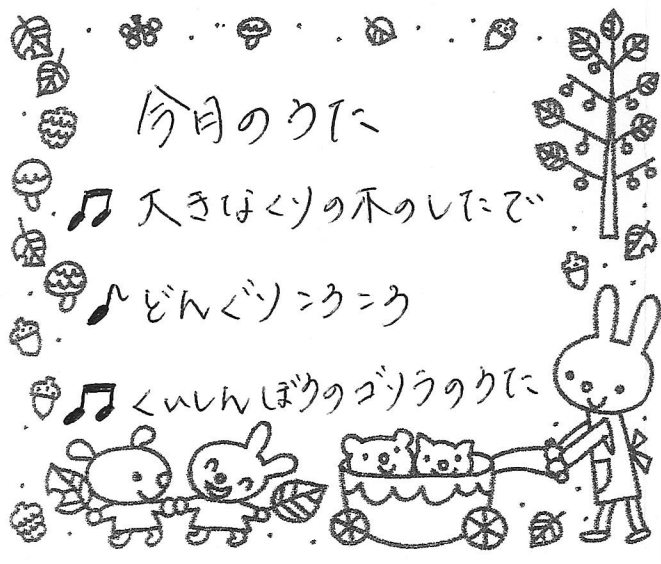 今月のうた
♫ 大きなくりの木のしたで
♪ どんぐりころころ
♫ くいしんぼうのゴリラのうた